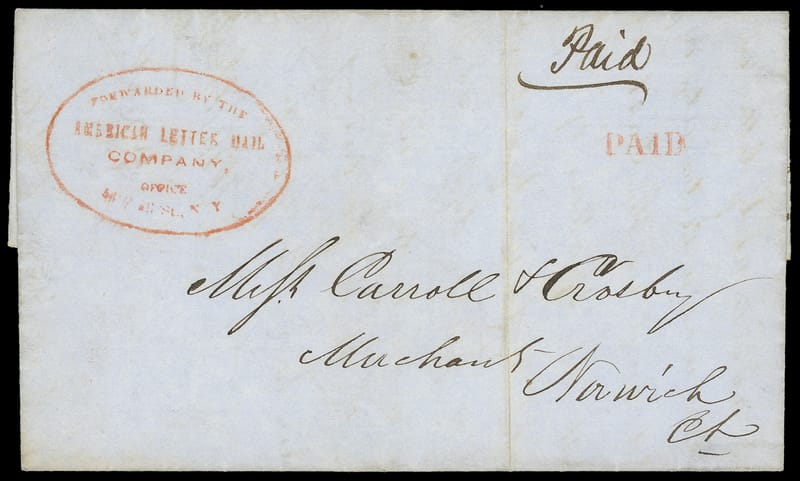 Paid
PAID
FORWARDED BY THE
AMERICAN LETTER MAIL
COMPANY,
OFFICE
ST., N. Y.
Mess Carroll & Crosby
Merchants
Norwich
Ct